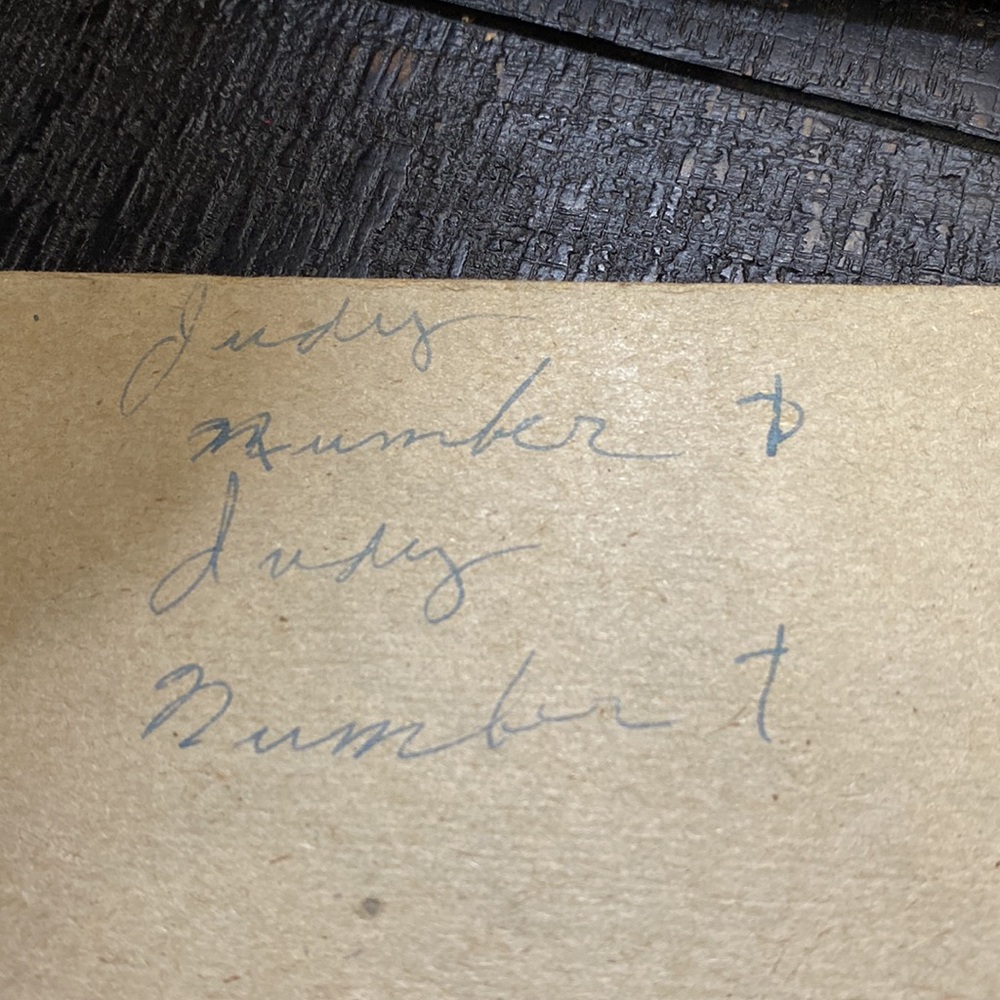 Judy
Number
Judy
Number